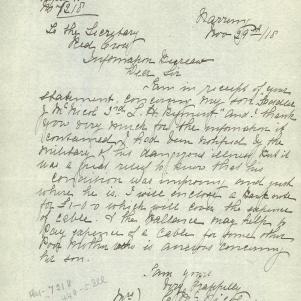 7218
Narrung
Nov 29th /18
To the Secretary
Red Cross
Information Bureau
Dear Sir
I am in receipt of your
statement concerning my son
J McNicol 3rd L. H. Regiment and I thank
you very much for the information it
contained I had been notified by the
Military of his dangerous illness but it
was a great relief to know that his
condition was improving and just
where he is. I will enclose a Bank note
for £1-0-0 which will cover the expense
of cable. & the Ballance may help to
pay expense of a cable for some other
Poor Mother who is anxious concerning
her son.
I am yours
Very
Mrs